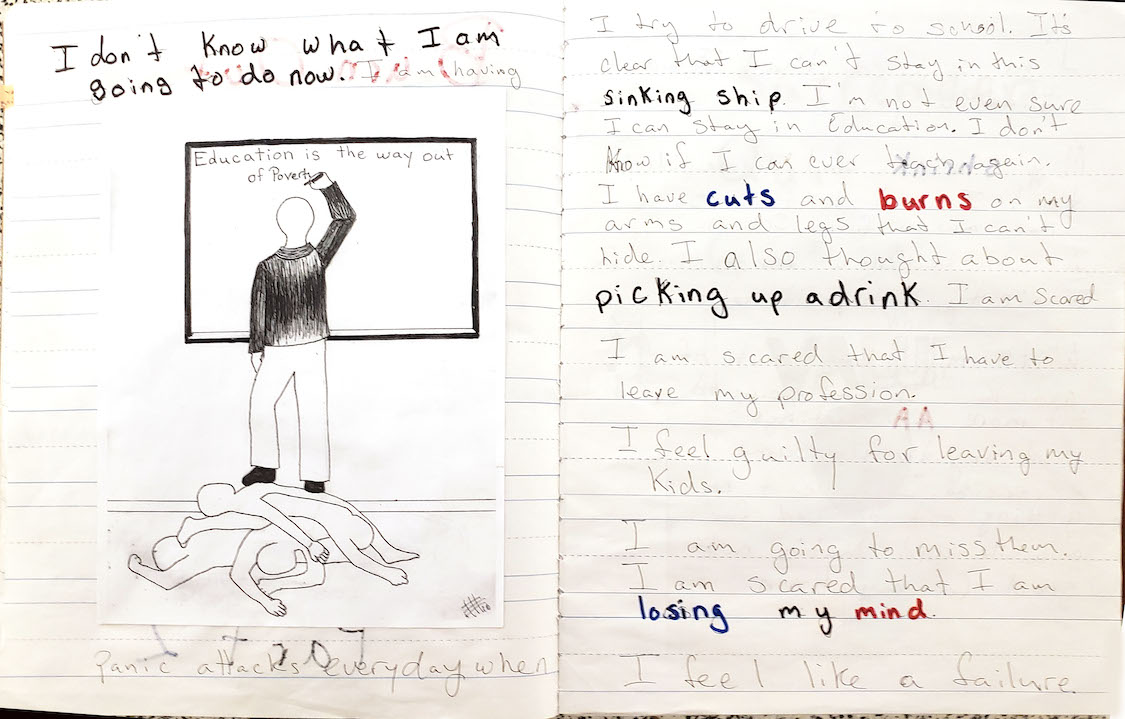 I don't know what I am
going to do now. I am having
Education is the way out
of Poverty
Panic attacks everyday when
I try to drive to school. It's
clear that I can't stay in this
sinking ship. I'm not even sure
I can stay in Education. I don't
know if I can ever teach again.
I have cuts and burns on my
arms and legs that I can't
hide. I also thought about
picking up a drink. I am scared
I am scared that I have to
leave my profession.
AA
I feel guilty for leaving my
kids.
I am going to miss them.
I am scared that I am
losing my mind.
I feel like a failure.